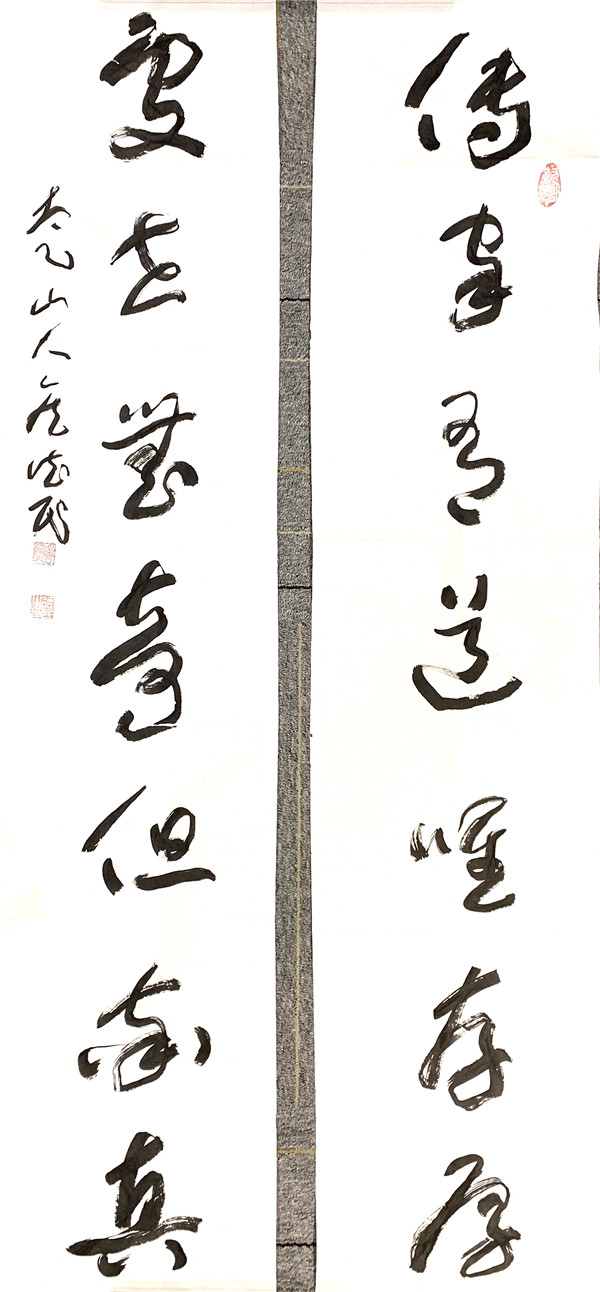 傳家有道唯存厚
處世無奇但率真
太乙山人